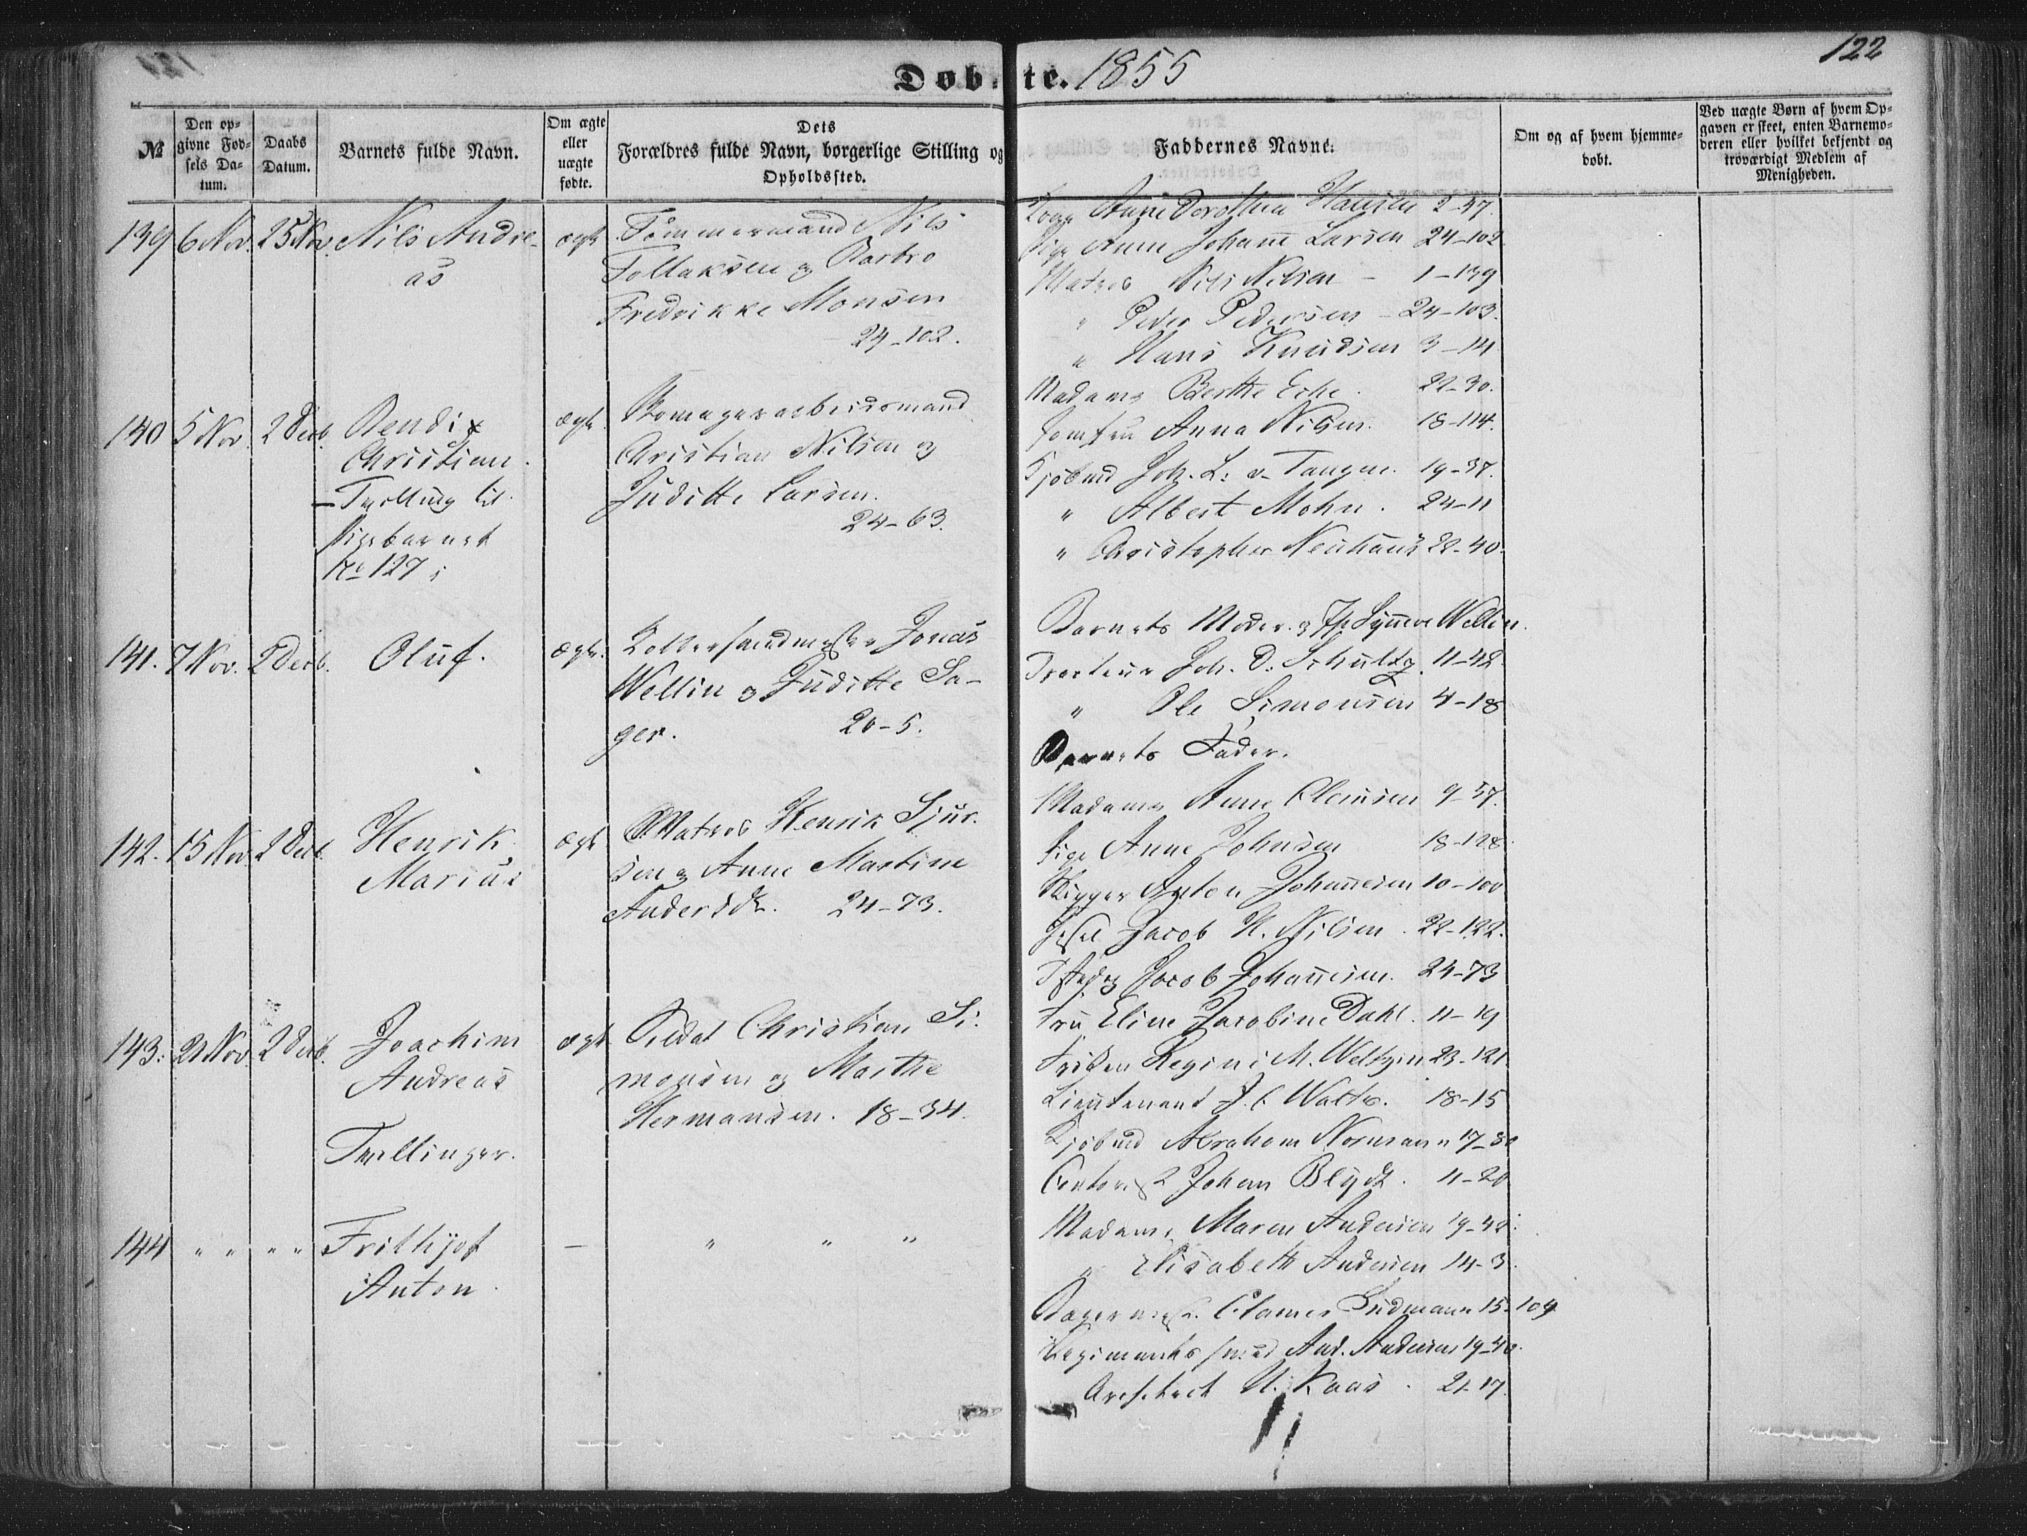 122
Døbte. 1855
№
Den opgivne Fødsels Datum.
Daabs Datum.
Barnets fulde Navn.
Om ægte eller uægte fødte.
Dets Forældres fulde Navn, borgerlige Stilling og Opholdssted.
Faddernes Navne.
Om og af hvem hjemmedøbt.
Ved uægte Børn af hvem Opgaven er skeet, enten Barnemoderen eller hvilket bekjendt og troværdigt Medlem af Menigheden.
139 6 Nov. 25 Nov. Nils Andre-
as
ægte
Tømmermand Nils
Tollaksen og Barbro
Fredrikke Monsen
24-102.
Anne Dorothea Hansen 2-57.
Pige Anne Johanne Larsen 24-102
Matros Nils Nilsen - 1-139
" Peder Pedersen - 24-103.
" Hans Knudsen 3-14
140 5 Nov. 2 Decb. Bendix
Christian.
- Tvilling til
Pigebarnet
No 127
ægte.
Christian Nilsen og
Juditte Larsen.
24-63.
Madame Berthe 22-30.
Jomfru Anna Nilsen. 18-114.
Kjøbmd Joh. L. v. Tangen. 19-37.
" Albert Mohn. 24-11
" Christopher Neuhaus 22-40.
141. 7 Nov. 2 Decb. Oluf.
ægte.
Jonas
Wellin og Juditte Sa-
ger. 20-5.
Barnets Moder. og Wellin.
Joh. D. Schultz. 11-42
" Ole Simonsen 4-18
Barnets Fader.
142. 15 Nov. 2 Decb. Henrik
Marius
ægte
Matros Henrik Sjur-
sen og Anne Martine
Andersdr. 24-73.
Madame Anne Clemsen 9-57.
Pige Anne Johnsen 18-128.
Skipper Anton Johannesen 10-100
Jacob H. Nilsen. 22-122.
Jacob Johannesen. 24-73
143. 21 Nov. 2 Decb. Joachim
Andreas
Tvillinger.
ægte
Soldat Christian Si-
monsen og Marthe
Hermansen. 18-34.
Fru Eline Jacobine Dahl. 11-19
Frøken Regine M. Weltzin 23-121
Lieutenant J. C. 18-15
Kjøbmd Abraham Normann 17-30
Contorist Johan Blydt. 11-20
144 " " " " Frithjof
Anton.
- " " "
Madame Maren Andersen 19-42.
" Elisabeth Andersen 14-3.
Bagermester Clamer Südmann 15-109
Regiments smed And. Andersen 19-40.
Architect H. Kaas. 21-17.